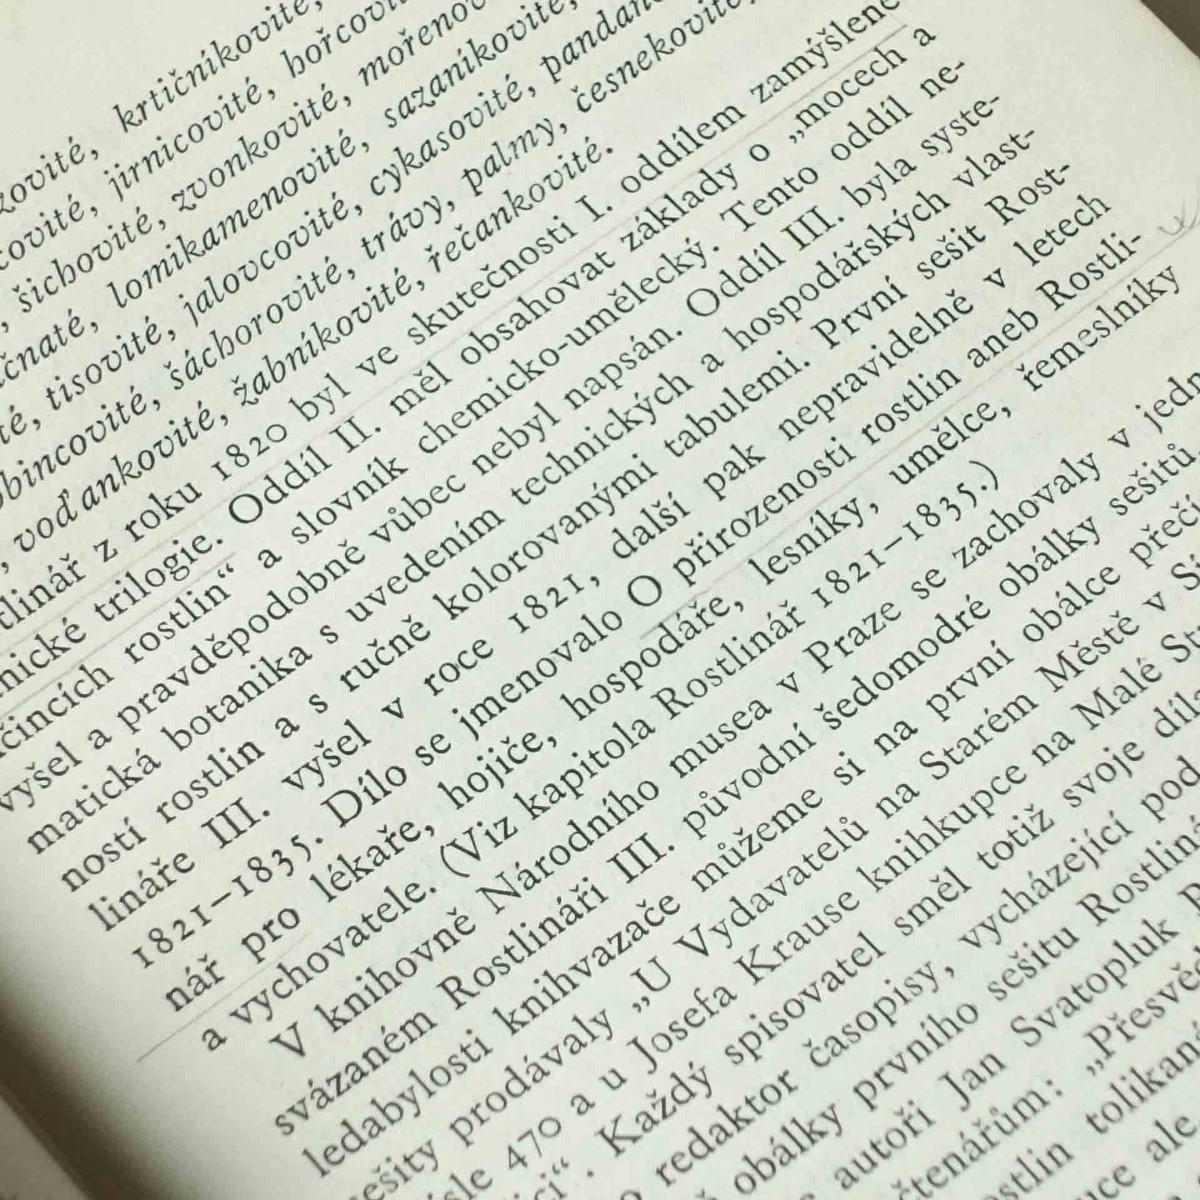 krtičníkovité,
jirnicovité, hořcovité
šichovité, zvonkovité, mořenov
lomikamenovité, sazaníkovité,
tisovité, jalovcovité, cykasovité, pandano
šáchorovité, trávy, palmy, česnekovité,
voďankovité, žabníkovité, řečankovité.
z roku 1820 byl ve skutečnosti I. oddílem zamýšlené
trilogie. Oddíl II. měl obsahovat základy o „mocech a
čincích rostlin“ a slovník chemicko-umělecký. Tento oddíl ne-
vyšel a pravděpodobně vůbec nebyl napsán. Oddíl III. byla syste-
matická botanika s uvedením technických a hospodářských vlast-
ností rostlin a s ručně kolorovanými tabulemi. První sešit Rost-
lináře III. vyšel v roce 1821, další pak nepravidelně v letech
1821–1835. Dílo se jmenovalo O přirozenosti rostlin aneb Rostli-
nář pro lékaře, hojiče, hospodáře, lesníky, umělce, řemeslníky
a vychovatele. (Viz kapitola Rostlinář 1821–1835.)
V knihovně Národního musea v Praze se zachovaly v jedn
svázaném Rostlináři III. původní šedomodré obálky sešitů,
ledabylosti knihvazače můžeme si na první obálce přečí
sešity prodávaly „U Vydavatelů na Starém Městě v Si
sle 470 a u Josefa Krause knihkupce na Malé St
ci“. Každý spisovatel směl totiž svoje díl
redaktor časopisy, vycházející pod
obálky prvního sešitu Rostliná
autoři Jan Svatopluk P
čtenářům: „Přesvěd
stlin tolikan
ale